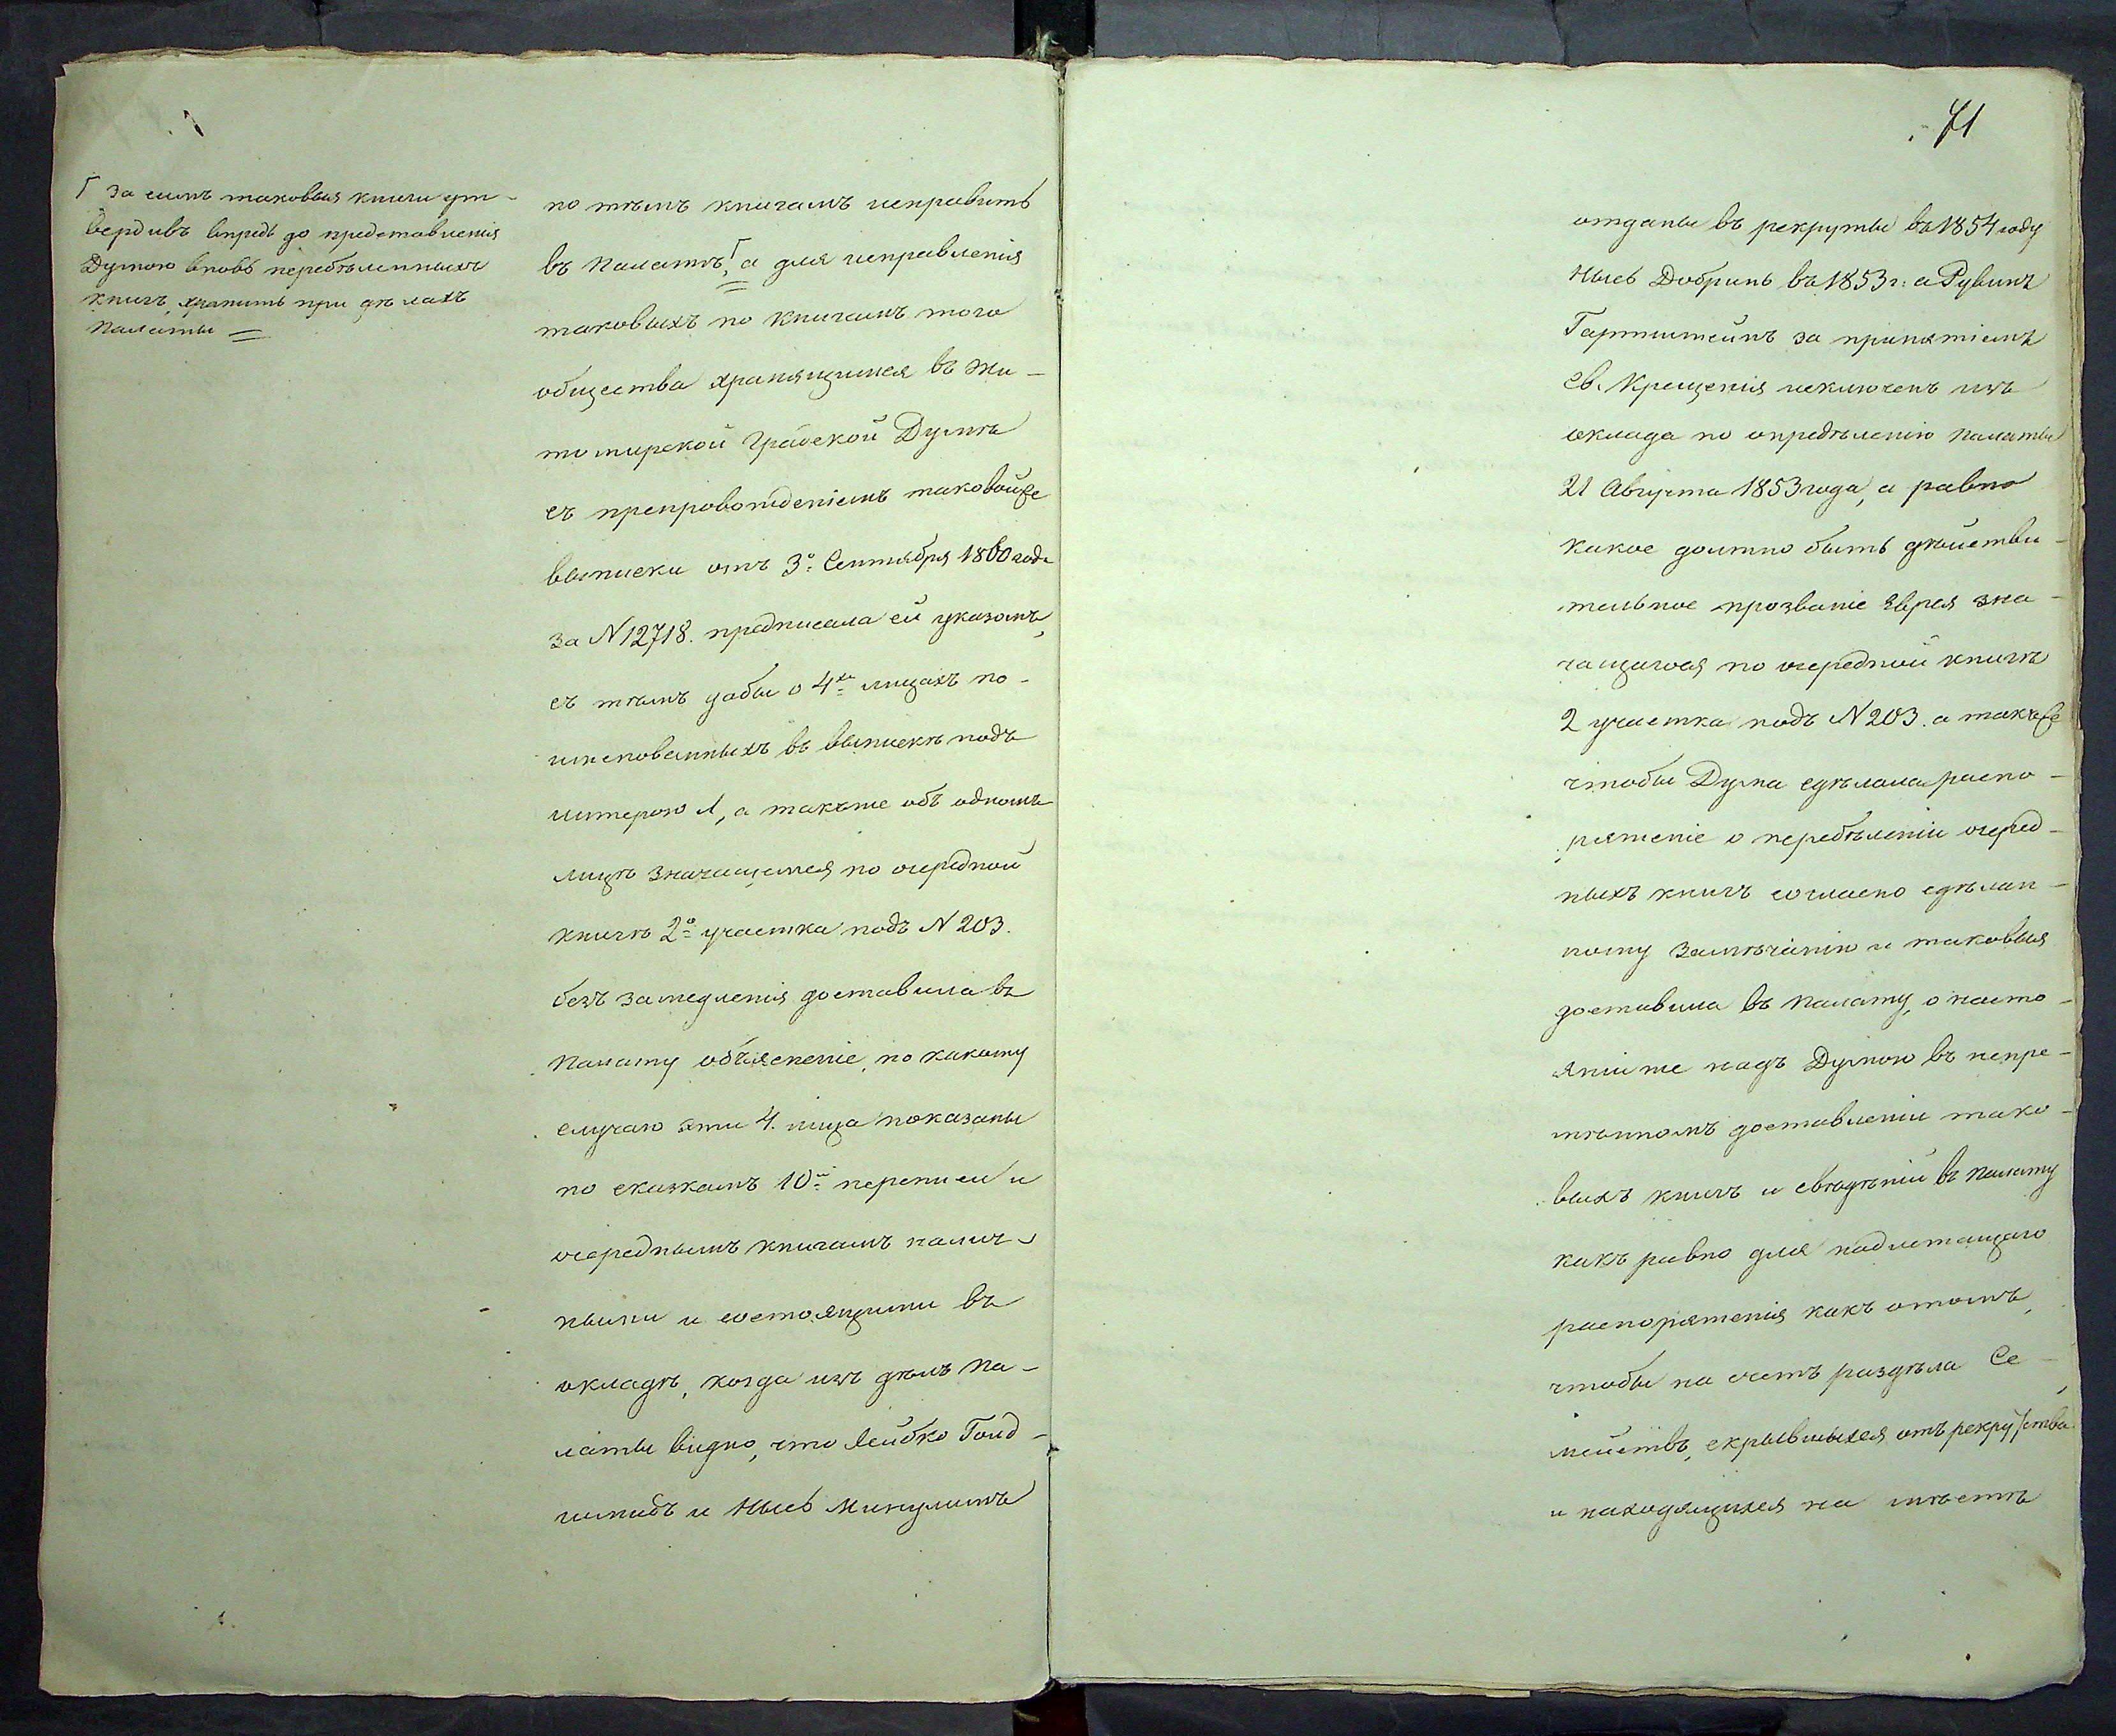 Г За симъ таковыя книги ут-
вердивъ впредь до представленія
Думою вновь перебѣленныхъ
книгъ, хранить при дѣлахъ
Палаты =
по тѣмъ книгамъ исправить
въ Палатѣ,Г а для исправленія
таковыхъ по книгамъ того
общества хранящимся въ Жи-
томирской Градской Думѣ
съ препровожденіемъ таковойже
выписки отъ 3о Сентября 1860 года
за N 12718. предписала ей указомъ,
съ тѣмъ дабы о 4хъ лицахъ по-
имѣнованныхъ въ выпискѣ подъ
литерою А, а также объ одномъ
лицѣ значащемся по очередной
книгѣ 2о участка подъ N 203.
безъ замедленія доставила въ
Палату объясненіе, по какому
случаю эти 4. лица показаны
по сказкамъ 10й переписи и
очереднымъ книгамъ налич-
ными и состоящими въ
окладѣ, когда изъ дѣлъ Па-
латы видно, что Лейбко Голд-
шмидъ и Ицко
71
отданы въ рекруты въ 1854 году
Добринъ въ 1853 г: а Рувинъ
Гартштейнъ за принятіемъ
Св. Крещенія исключенъ изъ
оклада по опредѣленію Палаты
21 Августа 1853 года, а равно
какое должно быть дѣйстви-
тельное прозваніе Еврея зна-
чащагося по очередной книгѣ
2 участка подъ N 203. а такъже
чтобы Дума сдѣлала распо-
ряженіе о перебѣленіи очеред-
ныхъ книгъ согласно сдѣлан-
ному замѣчанію и таковыя
доставила въ Палату, о насто-
яніиже надъ Думою въ непре-
мѣнномъ доставленіи тако-
выхъ книгъ и свѣдѣній въ Палату
какъ равно для надлежащаго
распоряженія какъ отомъ,
чтобы на счетъ раздѣла Се-
мействъ, скрывшихся отъ рекрутства
и находящихся на мѣстѣ